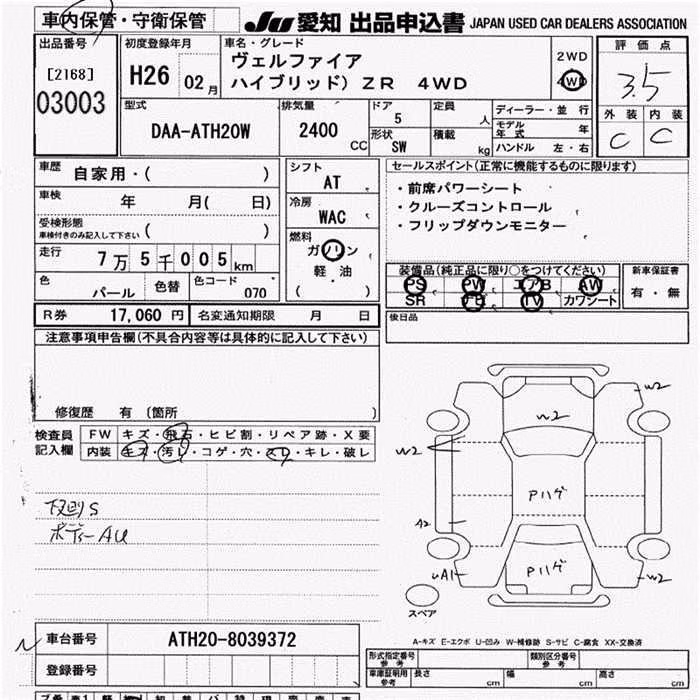 車内保管・守衛保管
JU 愛知 出品申込書 JAPAN USED CAR DEALERS ASSOCIATION
出品番号
[2168]
03003
初度登録年月
H26 02月
車名・グレード
ヴェルファイア
ハイブリッド) ZR 4WD
2WD
4WD
評価点
3.5
外装 内装
C C
型式
DAA-ATH20W
排気量
2400 CC
ドア 5
形状 SW
定員 人
積載 kg
ディーラー・並行
モデル年式 年
ハンドル 左・右
車歴 自家用・( )
車検 年 月( 日)
受検形態
車検付きのみ記入して下さい ( )
走行 7万5千005km
色 パール 色替 色コード 070
シフト
AT
冷房
WAC
燃料
ガソリン
軽・油
( )
セールスポイント(正常に機能するものに限ります)
・前席パワーシート
・クルーズコントロール
・フリップダウンモニター
装備品(純正品に限り○をつけてください)
PS PW エアB AW
SR ナビ TV カワシート
新車保証書
有・無
R券 17,060円 名変通知期限 月 日
後日品
注意事項申告欄(不具合内容等は具体的に記入して下さい)
修復歴 有 (箇所 )
検査員記入欄
FW キズ・飛石・ヒビ割・リペア跡・X要
内装 キズ・汚レ・コゲ・穴・スレ・キレ・破レ
下廻りS
ボディーAU
W2
W2
W2
Pハゲ
A2
Pハゲ
UA1
W2
スペア
A-キズ E-エクボ U-凹み W-補修跡 S-サビ C-腐食 XX-交換済
車台番号 ATH20-8039372
登録番号
形式指定番号 参考
類別区分番号 参考
車庫証明用 参考 長さ cm 幅 cm 高さ cm